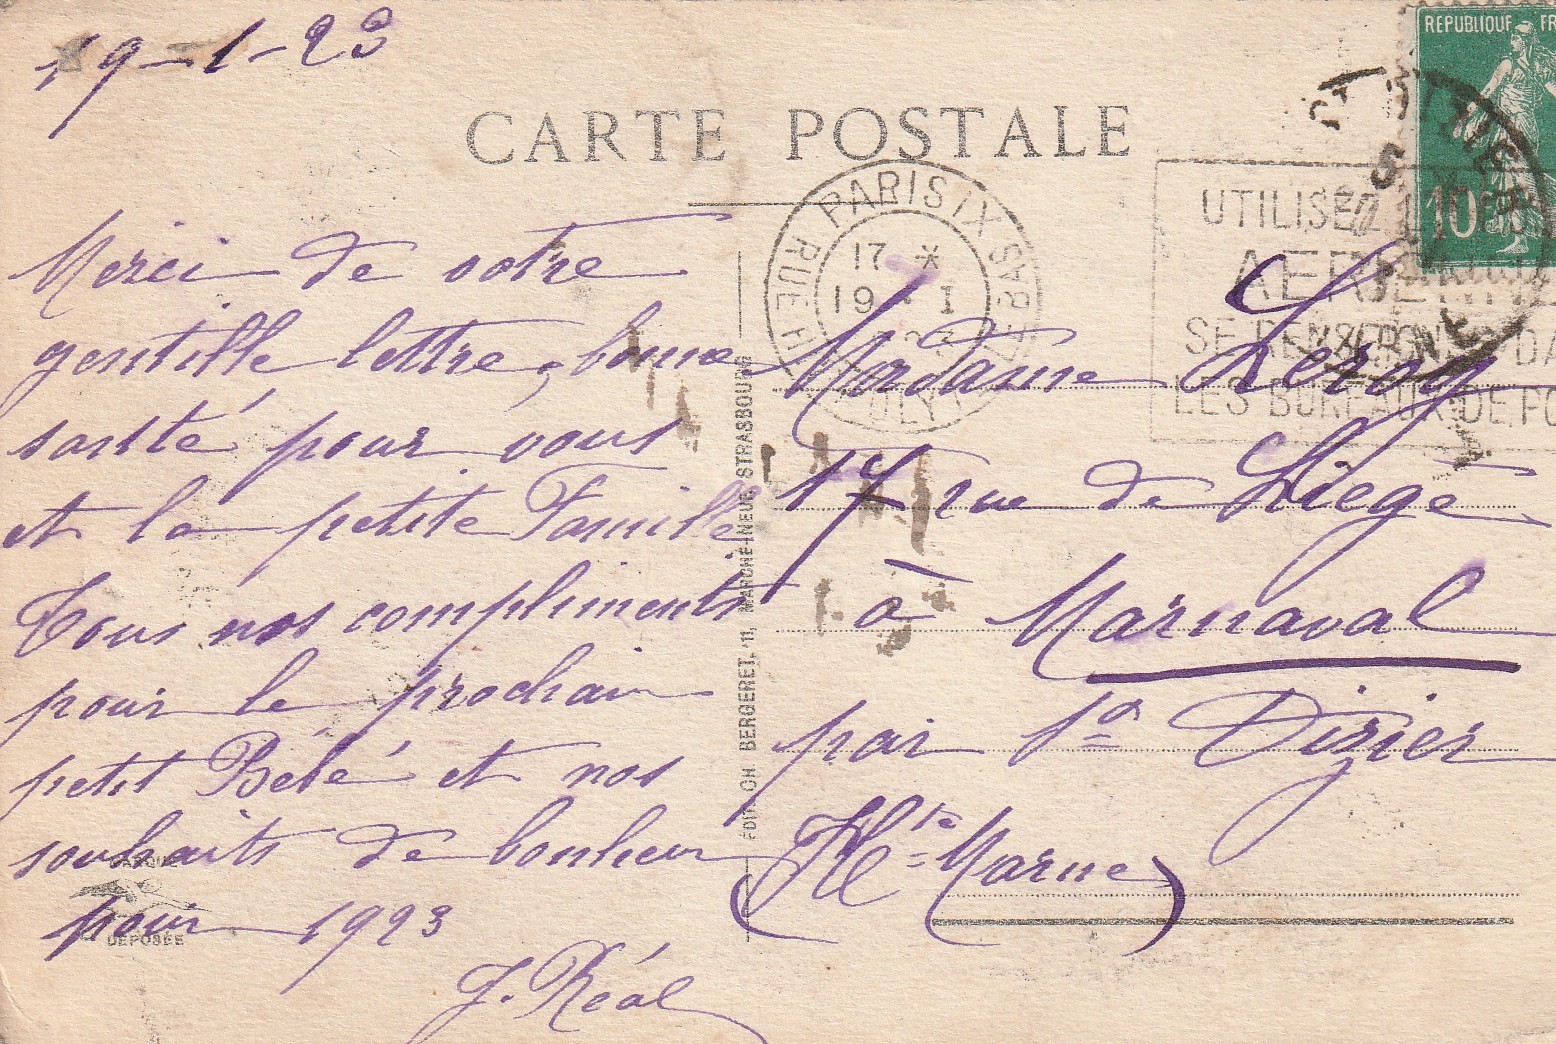 19-1-23
CARTE POSTALE
Merci de votre
gentille lettre, bonne
santé pour vous
et la petite Famille
Tous nos compliments
pour le prochain
petit Bébé et nos
souhaits de bonheur
pour 1923
J. Réal
MARQUE
DÉPOSÉE
EDIT. CH. BERGERET, 11, MARCHÉ-NEUF, STRASBOURG
REPUBLIQUE FR
10
PARIS IX
RUE HIPPOLYTE LEBAS
17 *
19 - I
UTILISEZ LA
AERIENNE
SE RENSEIGNER DA
LES BUREAUX DE PO
Madame Leroy
17 rue de Liège
à Marnaval
par St Dizier
(Hte Marne)